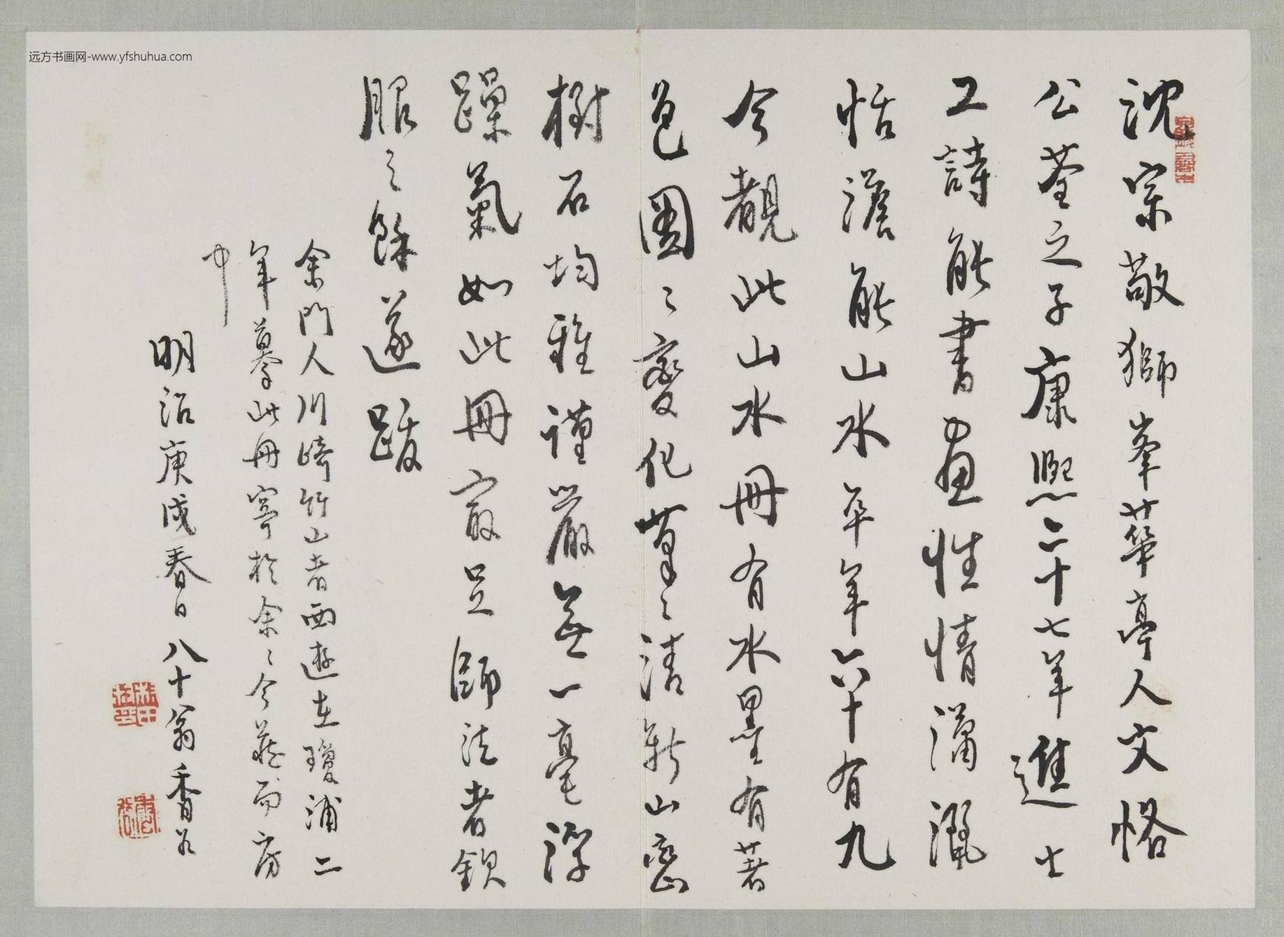 远方书画网-www.yfshuhua.com
沈宗敬獅峯華亭人文恪
公荃之子康熙二十七年進士
工詩能書畫性情瀟灑
恬澹能山水卒年六十有九
今觀此山水冊有水墨有著
色圖〻變化筆〻清新山巒
樹石均雅謹嚴無一毫浮
躁氣如此冊最足師法者欽
服之餘遂跋
余門人川崎竹山者西遊在瓊浦二
年摹此冊寄於余〻今藏而房
中
明治庚戌春日八十翁香